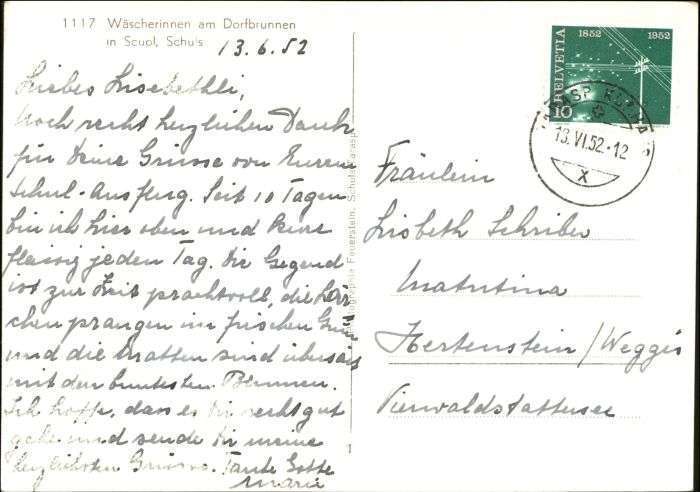 1117 Wäscherinnen am Dorfbrunnen
in Scuol, Schuls
13.6.52
Liebes Lisebethli,
noch recht herzlichen Dank
für Deine Grüsse von Eurem
Schul-Ausflug. Seit 10 Tagen
bin ich hier oben und kure
fleissig jeden Tag. Die Gegend
ist zur Zeit prachtvoll, die Lär-
chen prangen im frischen Grün
und die Matten sind übersät
mit den buntesten Blumen.
Ich hoffe, dass es Dir recht gut
gehe und sende Dir meine
herzlichsten Grüsse. Tante Gotte
Marie
Photographie Feuerstein, Schuls-Tarasp
1
HELVETIA
1852 1952
10
TARASP
13.VI.52-12
X
Fräulein
Lisbeth Schriber
Matutina
Hertenstein/Weggis
Vierwaldstattersee